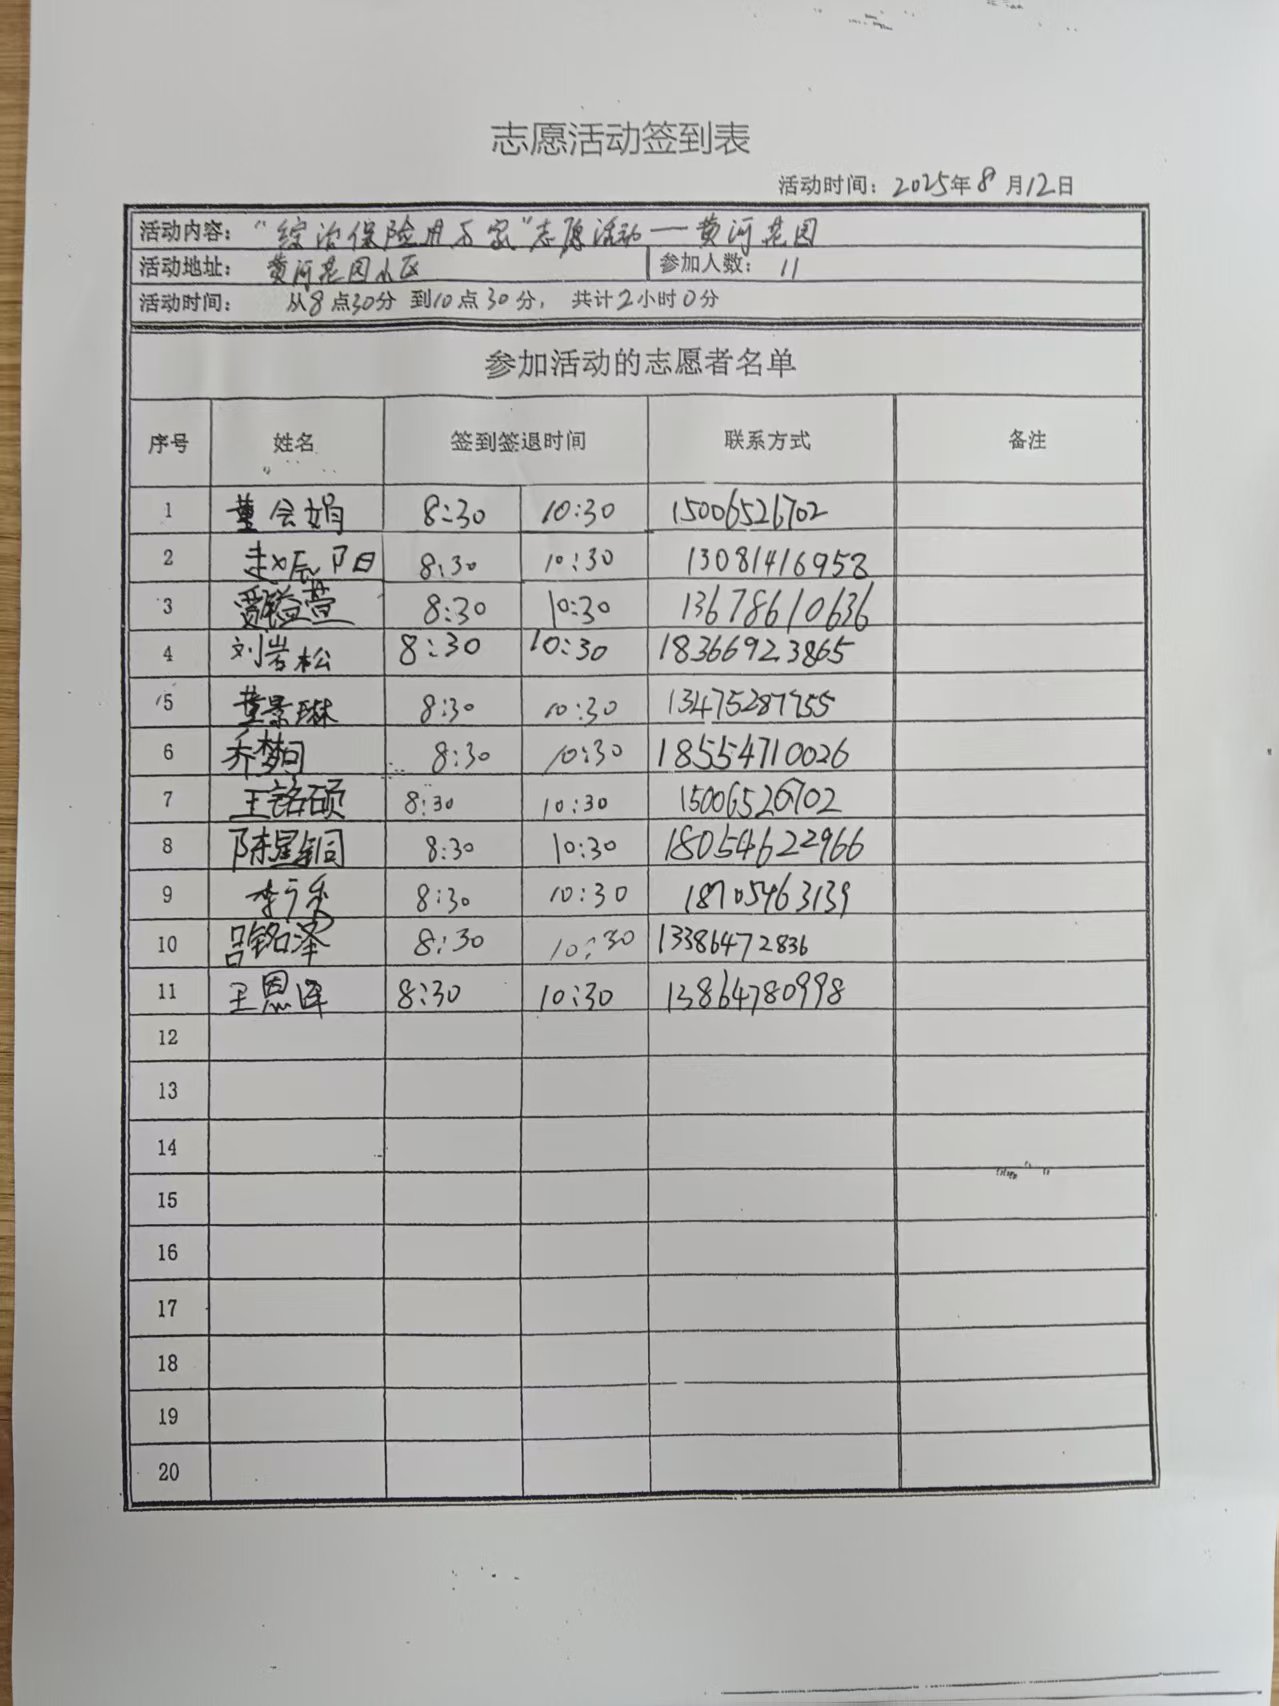 志愿活动签到表
活动时间：2025年8月12日
活动内容："综治保险进万家"志愿活动—黄河花园
活动地址：黄河花园小区 参加人数：11
活动时间：从8点30分 到10点30分， 共计2小时0分
参加活动的志愿者名单
序号 姓名 签到签退时间 联系方式 备注
1 董会娟 8:30 10:30 15006526702
2 赵辰阳 8:30 10:30 13081416958
3 贾溢萱 8:30 10:30 13678610636
4 刘岩松 8:30 10:30 18366923865
5 董景琳 8:30 10:30 13475287755
6 乔梦 8:30 10:30 18554710026
7 王铭硕 8:30 10:30 15006526702
8 陈星铜 8:30 10:30 18054622966
9 李 8:30 10:30 18705463139
10 吕铭泽 8:30 10:30 13386472836
11 王恩泽 8:30 10:30 13864780998
12
13
14
15
16
17
18
19
20